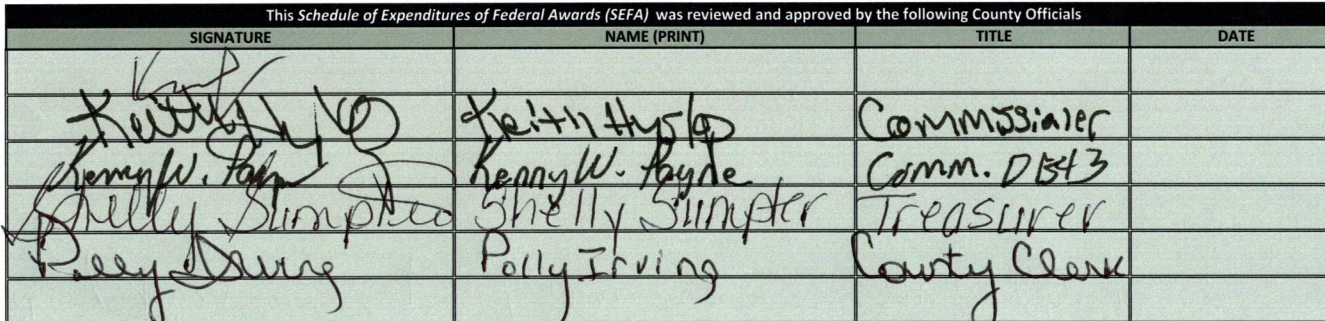 This Schedule of Expenditures of Federal Awards (SEFA) was reviewed and approved by the following County Officials
SIGNATURE NAME (PRINT) TITLE DATE
Keith Hyslop Commissioner
Kenny W. Payne Kenny W. Payne Comm. Dist 3
Shelly Sumpter Shelly Sumpter Treasurer
Polly Irving Polly Irving County Clerk